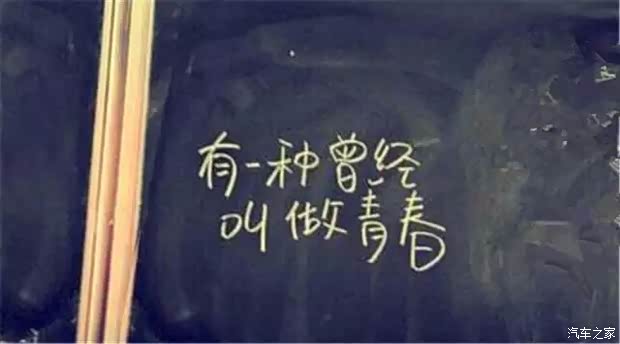 有一种曾经
叫做青春
汽车之家